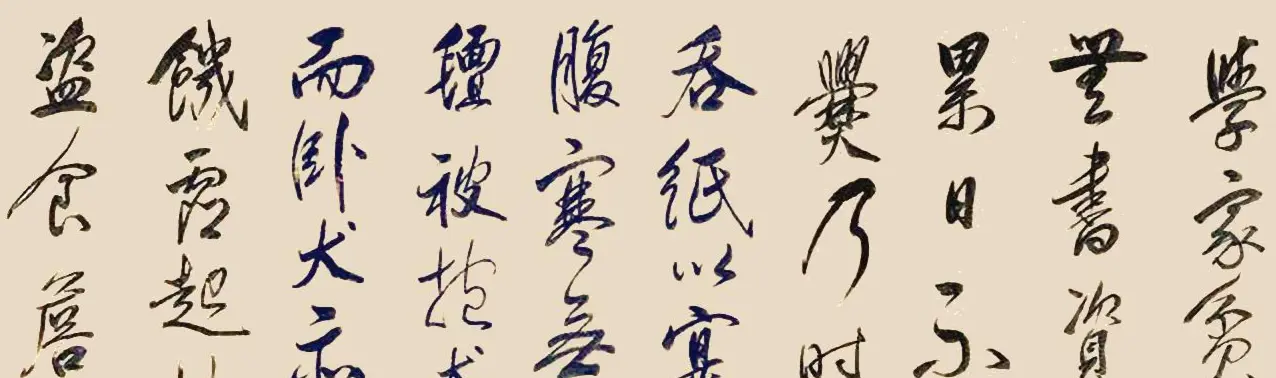 學家貧
無書資
累日不
爨乃时
吞紙以實
腹寒無
氊被抱犬
而卧犬亦
饑虛起
盜食詹